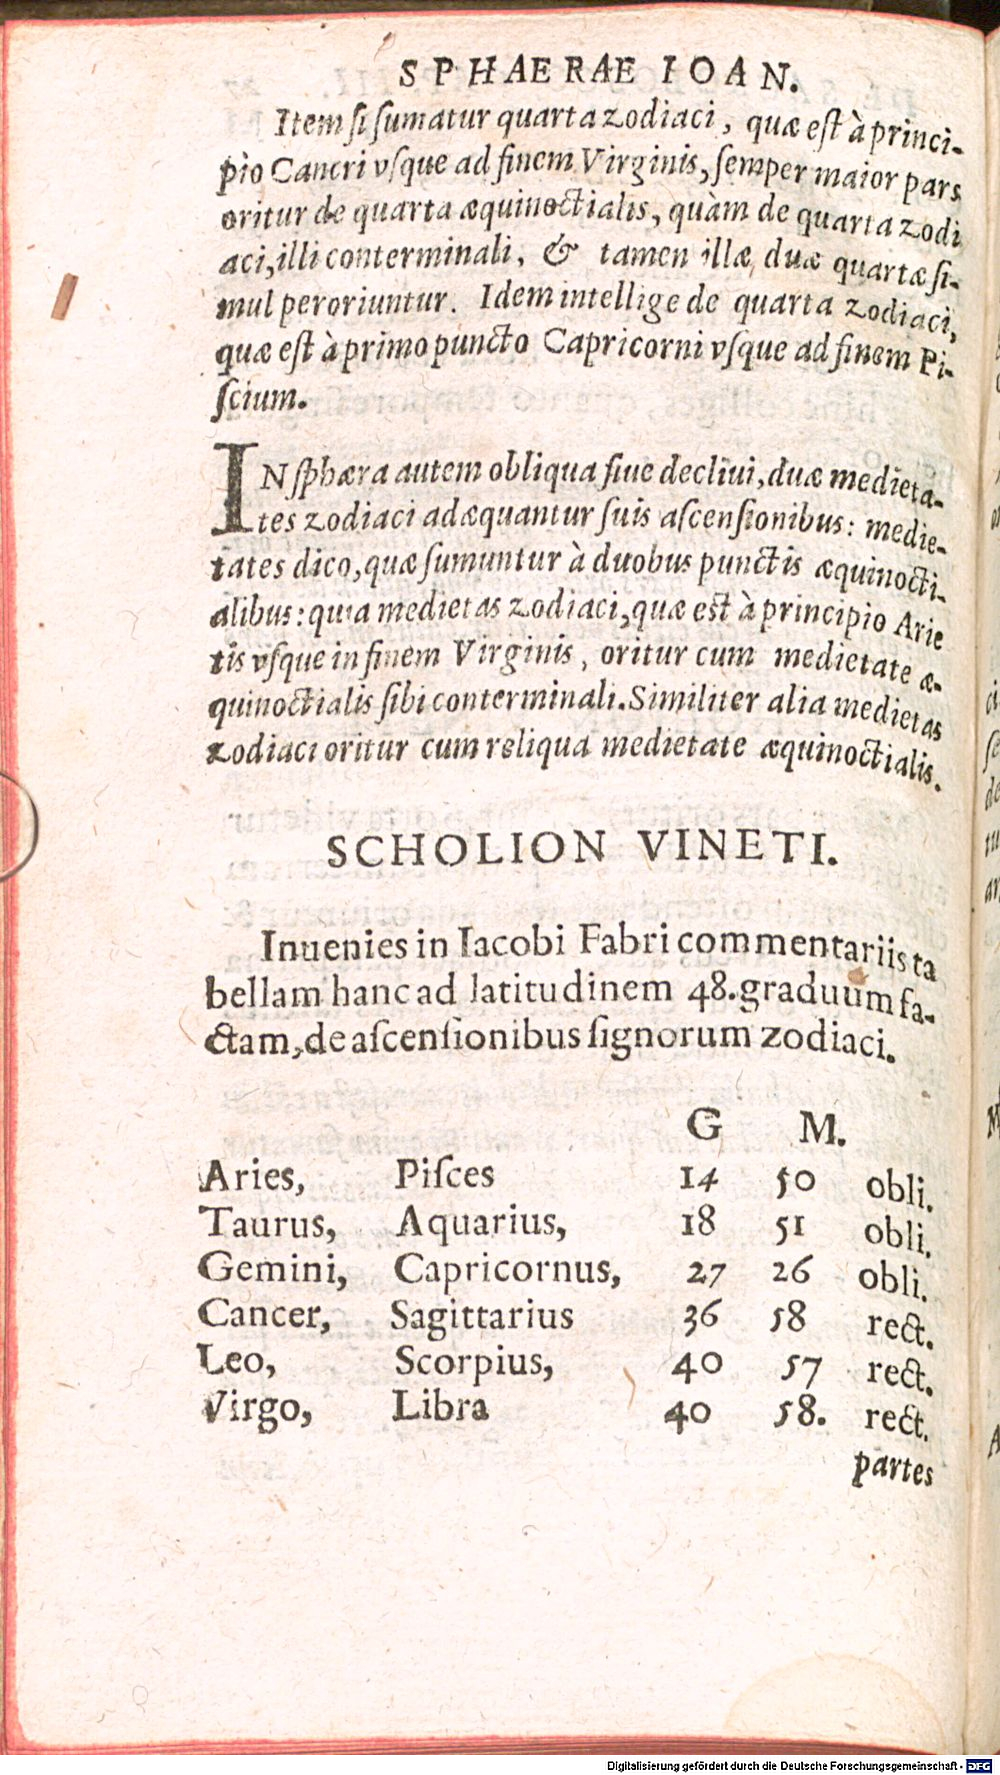 SPHAERAE IOAN.
Item si sumatur quarta zodiaci, quæ est à princi-
pio Cancri vsque ad finem Virginis, semper maior pars
oritur de quarta æquinoctialis, quàm de quarta zodi
aci, illi conterminali, & tamen illæ duæ quartæ si-
mul peroriuntur. Idem intellige de quarta zodiaci,
quæ est à primo puncto Capricorni vsque ad finem Pi-
scium.
IN sphæra autem obliqua siue decliui, duæ medieta-
tes zodiaci adæquantur suis ascensionibus: medie-
tates dico, quæ sumuntur à duobus punctis æquinocti-
alibus: quia medietas zodiaci, quæ est à principio Arie
tis vsque in finem Virginis, oritur cum medietate æ-
quinoctialis sibi conterminali. Similiter alia medietas
zodiaci oritur cum reliqua medietate æquinoctialis.
SCHOLION VINETI.
Inuenies in Iacobi Fabri commentariis ta
bellam hanc ad latitudinem 48. graduum fa-
ctam, de ascensionibus signorum zodiaci.
G M.
Aries, Pisces 14 50 obli.
Taurus, Aquarius, 18 51 obli.
Gemini, Capricornus, 27 26 obli.
Cancer, Sagittarius 36 58 rect.
Leo, Scorpius, 40 57 rect.
Virgo, Libra 40 58. rect.
partes
Digitalisierung gefördert durch die Deutsche Forschungsgemeinschaft - DFG